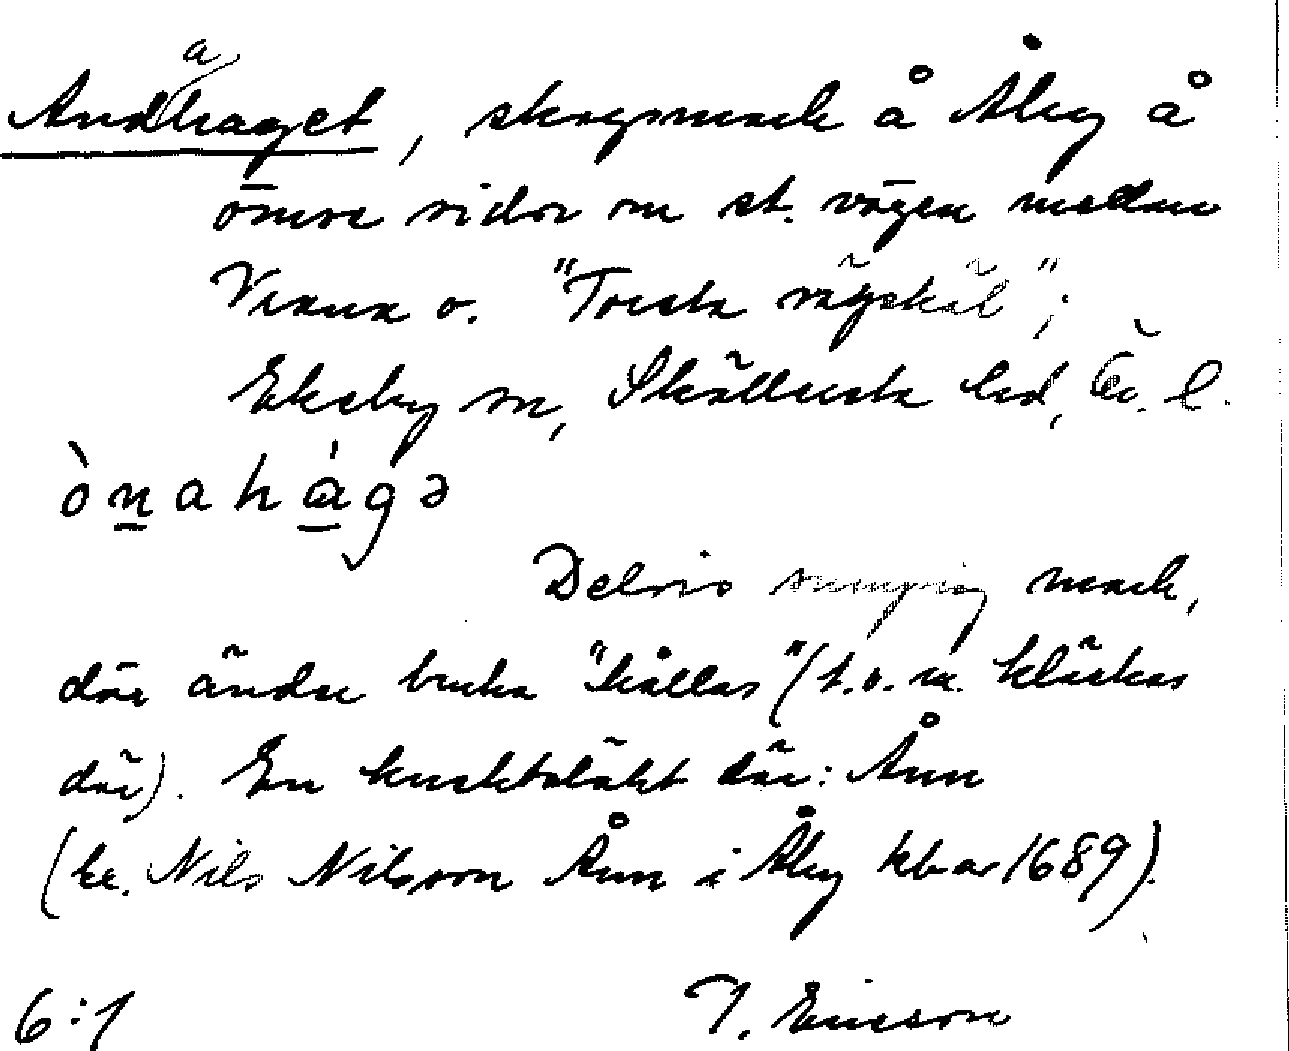 Andahaget, skogsmark å Åby å
ömse sidor om st. vägen mellan
Vrana o. "Torsta vägskäl";
Ekeby sn, Skyllersta hd, Ör. l.
ònahágə
Delvis sumpig mark,
där änder bruka "hållas" (t.o.m. kläckas
där). En knektsläkt där: Ånn
(kr. Nils Nilsson Ånn i Åby kb a 1689).
6:1 T. Ericson